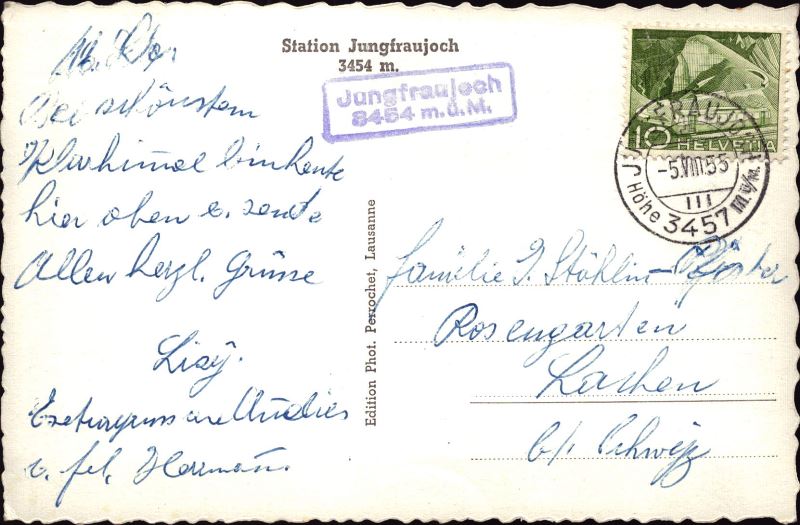 Station Jungfraujoch
3454 m.
Jungfraujoch
3454 m.ü.M.
10 HELVETIA
JUNGFRAUJOCH
-5.VIII.55
III
Höhe 3457 m ü/M.
Bei schönstem
hier oben u. sende
Allen herzl. Grüsse
Lisy.
u. frl. Herrmann.
Edition Phot. Perrochet, Lausanne
Familie J. Stählin-Pfister
Rosengarten
Lachen
b/. Schwyz